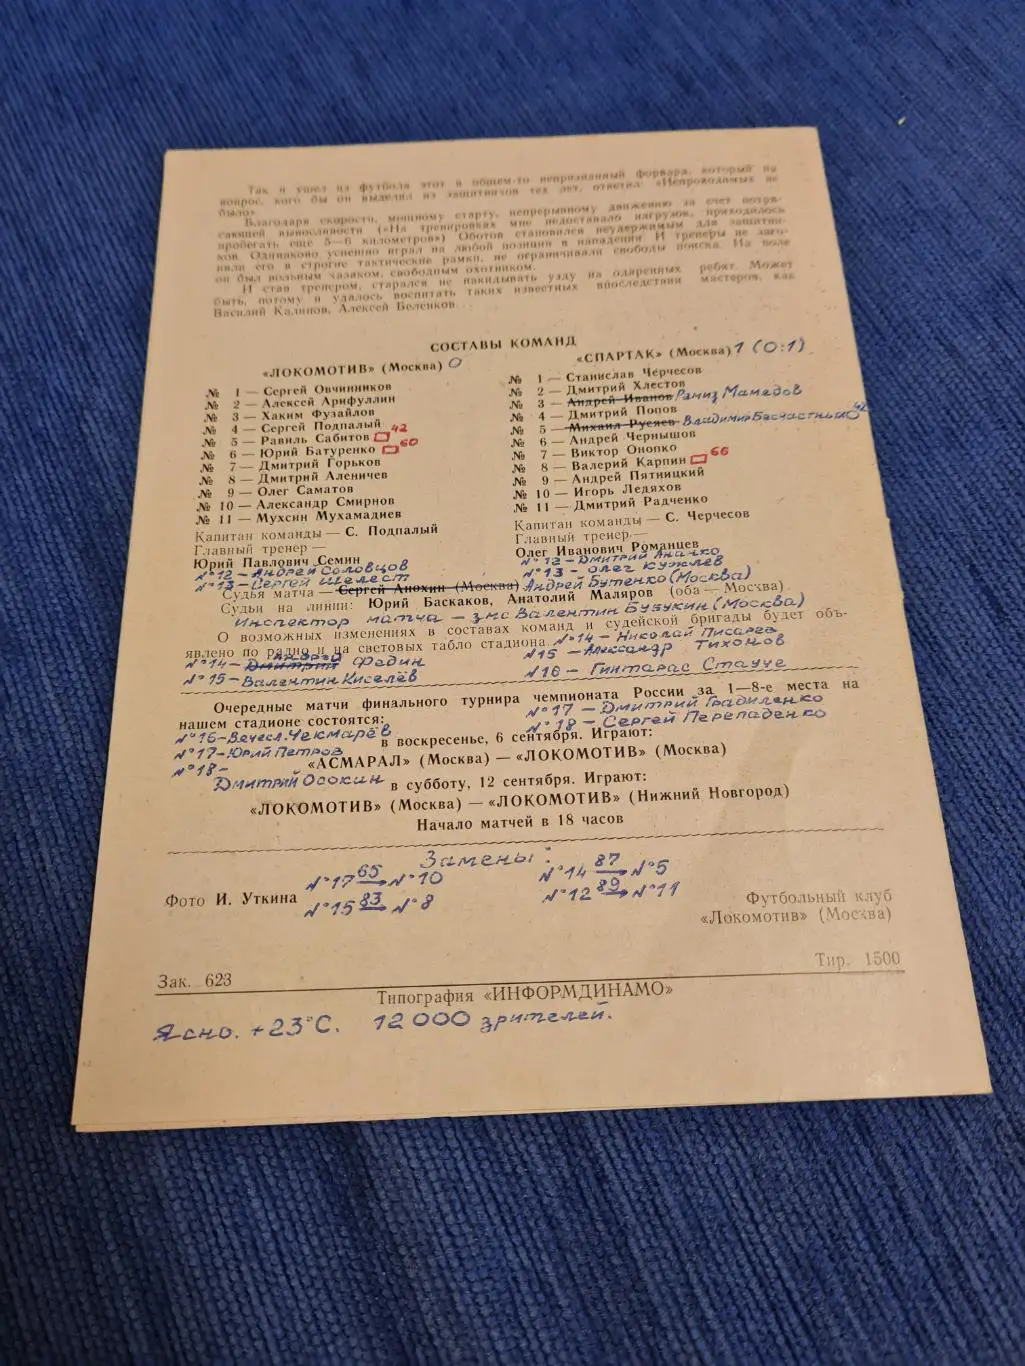 Так и ушел из футбола этот в общем-то непризнанный форвард, который на
вопрос, кого бы он выделил из защитников тех лет, ответил: «Непроходимых не
было»
Благодаря скорости, мощному старту, непрерывному движению за счет потря-
сающей выносливости («На тренировках мне недоставало нагрузок, приходилось
пробегать еще 5—6 километров») Оботов становился неудержимым для защитни-
ков. Одинаково успешно играл на любой позиции в нападении. И тренеры не заго-
няли его в строгие тактические рамки, не ограничивали свободы поиска. На поле
он был вольным казаком, свободным охотником.
И став тренером, старался не накидывать узду на одаренных ребят. Может
быть, потому и удалось воспитать таких известных впоследствии мастеров, как
Василий Калинов, Алексей Беленков...
СОСТАВЫ КОМАНД
«ЛОКОМОТИВ» (Москва) 0
№ 1 — Сергей Овчинников
№ 2 — Алексей Арифуллин
№ 3 — Хаким Фузайлов
№ 4 — Сергей Подпалый
№ 5 — Равиль Сабитов 42
№ 6 — Юрий Батуренко 60
№ 7 — Дмитрий Горьков
№ 8 — Дмитрий Аленичев
№ 9 — Олег Саматов
№ 10 — Александр Смирнов
№ 11 — Мухсин Мухамадиев
Капитан команды — С. Подпалый
Главный тренер —
Юрий Павлович Семин
№12 - Андрей Соловцов
№13 - Сергей Шелест
«СПАРТАК» (Москва) 1 (0:1)
№ 1 — Станислав Черчесов
№ 2 — Дмитрий Хлестов
№ 3 — Андрей Иванов Рамиз Мамедов
№ 4 — Дмитрий Попов
№ 5 — Михаил Русяев Владимир Бесчастных 42
№ 6 — Андрей Чернышов
№ 7 — Виктор Онопко
№ 8 — Валерий Карпин 66
№ 9 — Андрей Пятницкий
№ 10 — Игорь Ледяхов
№ 11 — Дмитрий Радченко
Капитан команды — С. Черчесов
Главный тренер —
Олег Иванович Романцев
№12 - Дмитрий Ананко
№13 - Олег Кужлев
Судья матча — Сергей Анохин (Москва) Андрей Бутенко (Москва)
Судьи на линии: Юрий Баскаков, Анатолий Маляров (оба — Москва)
Инспектор матча - змс Валентин Бубукин (Москва)
О возможных изменениях в составах команд и судейской бригады будет объ-
явлено по радио и на световых табло стадиона.
№14 - Николай Писарев
№15 - Александр Тихонов
№16 - Гинтарас Стауче
№14 - Дмитрий Андрей Федин
№15 - Валентин Киселёв
Очередные матчи финального турнира чемпионата России за 1—8-е места на
нашем стадионе состоятся:
№17 - Дмитрий Градиленко
№18 - Сергей Перепаденко
№16 - Вячесл. Чекмарёв
№17 - Юрий Петров
№18 -
Дмитрий Осокин
в воскресенье, 6 сентября. Играют:
«АСМАРАЛ» (Москва) — «ЛОКОМОТИВ» (Москва)
в субботу, 12 сентября. Играют:
«ЛОКОМОТИВ» (Москва) — «ЛОКОМОТИВ» (Нижний Новгород)
Начало матчей в 18 часов
Замены:
№17 65 → №10
№15 83 → №8
№14 87 → №5
№12 89 → №11
Фото И. Уткина
Футбольный клуб
«Локомотив» (Москва)
Зак. 623
Тир. 1500
Типография «ИНФОРМДИНАМО»
Ясно. +23°С. 12 000 зрителей.